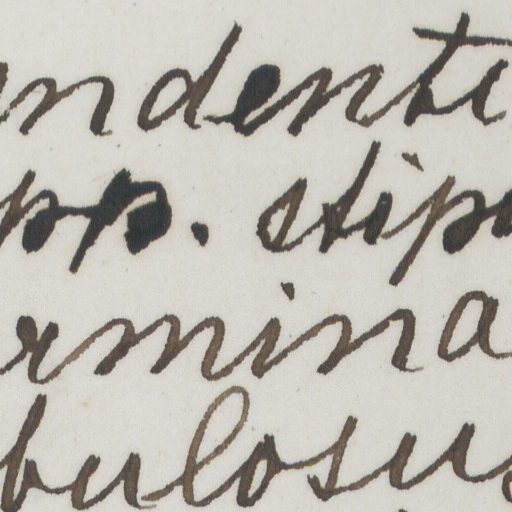 ndenti
pp. stipa
rmina
bulosus